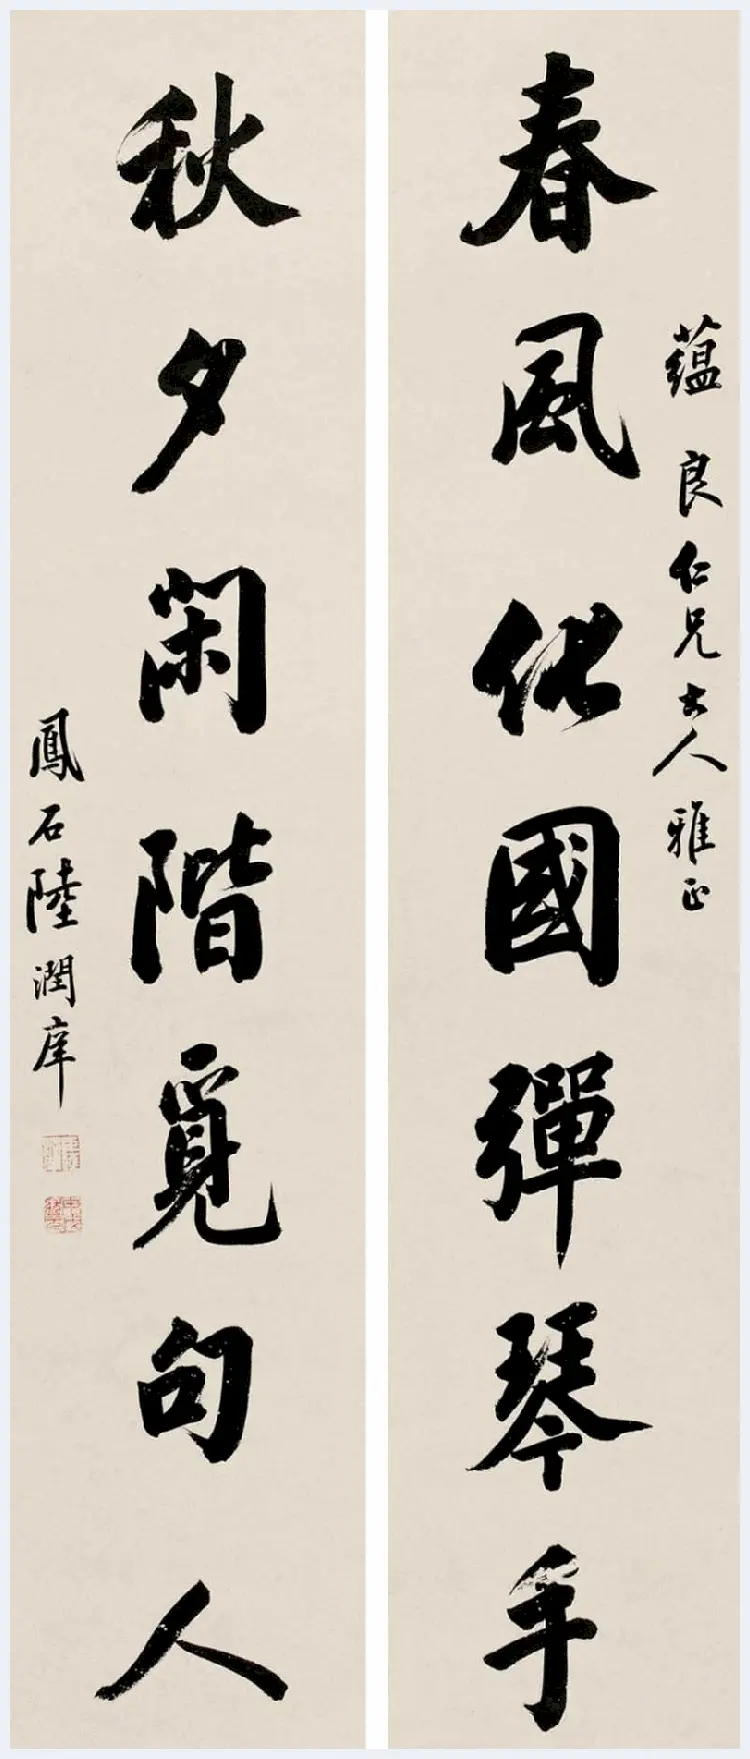 蘊良仁兄大人雅正
春風化國彈琴手
秋夕閑階覓句人
鳳石陸潤庠